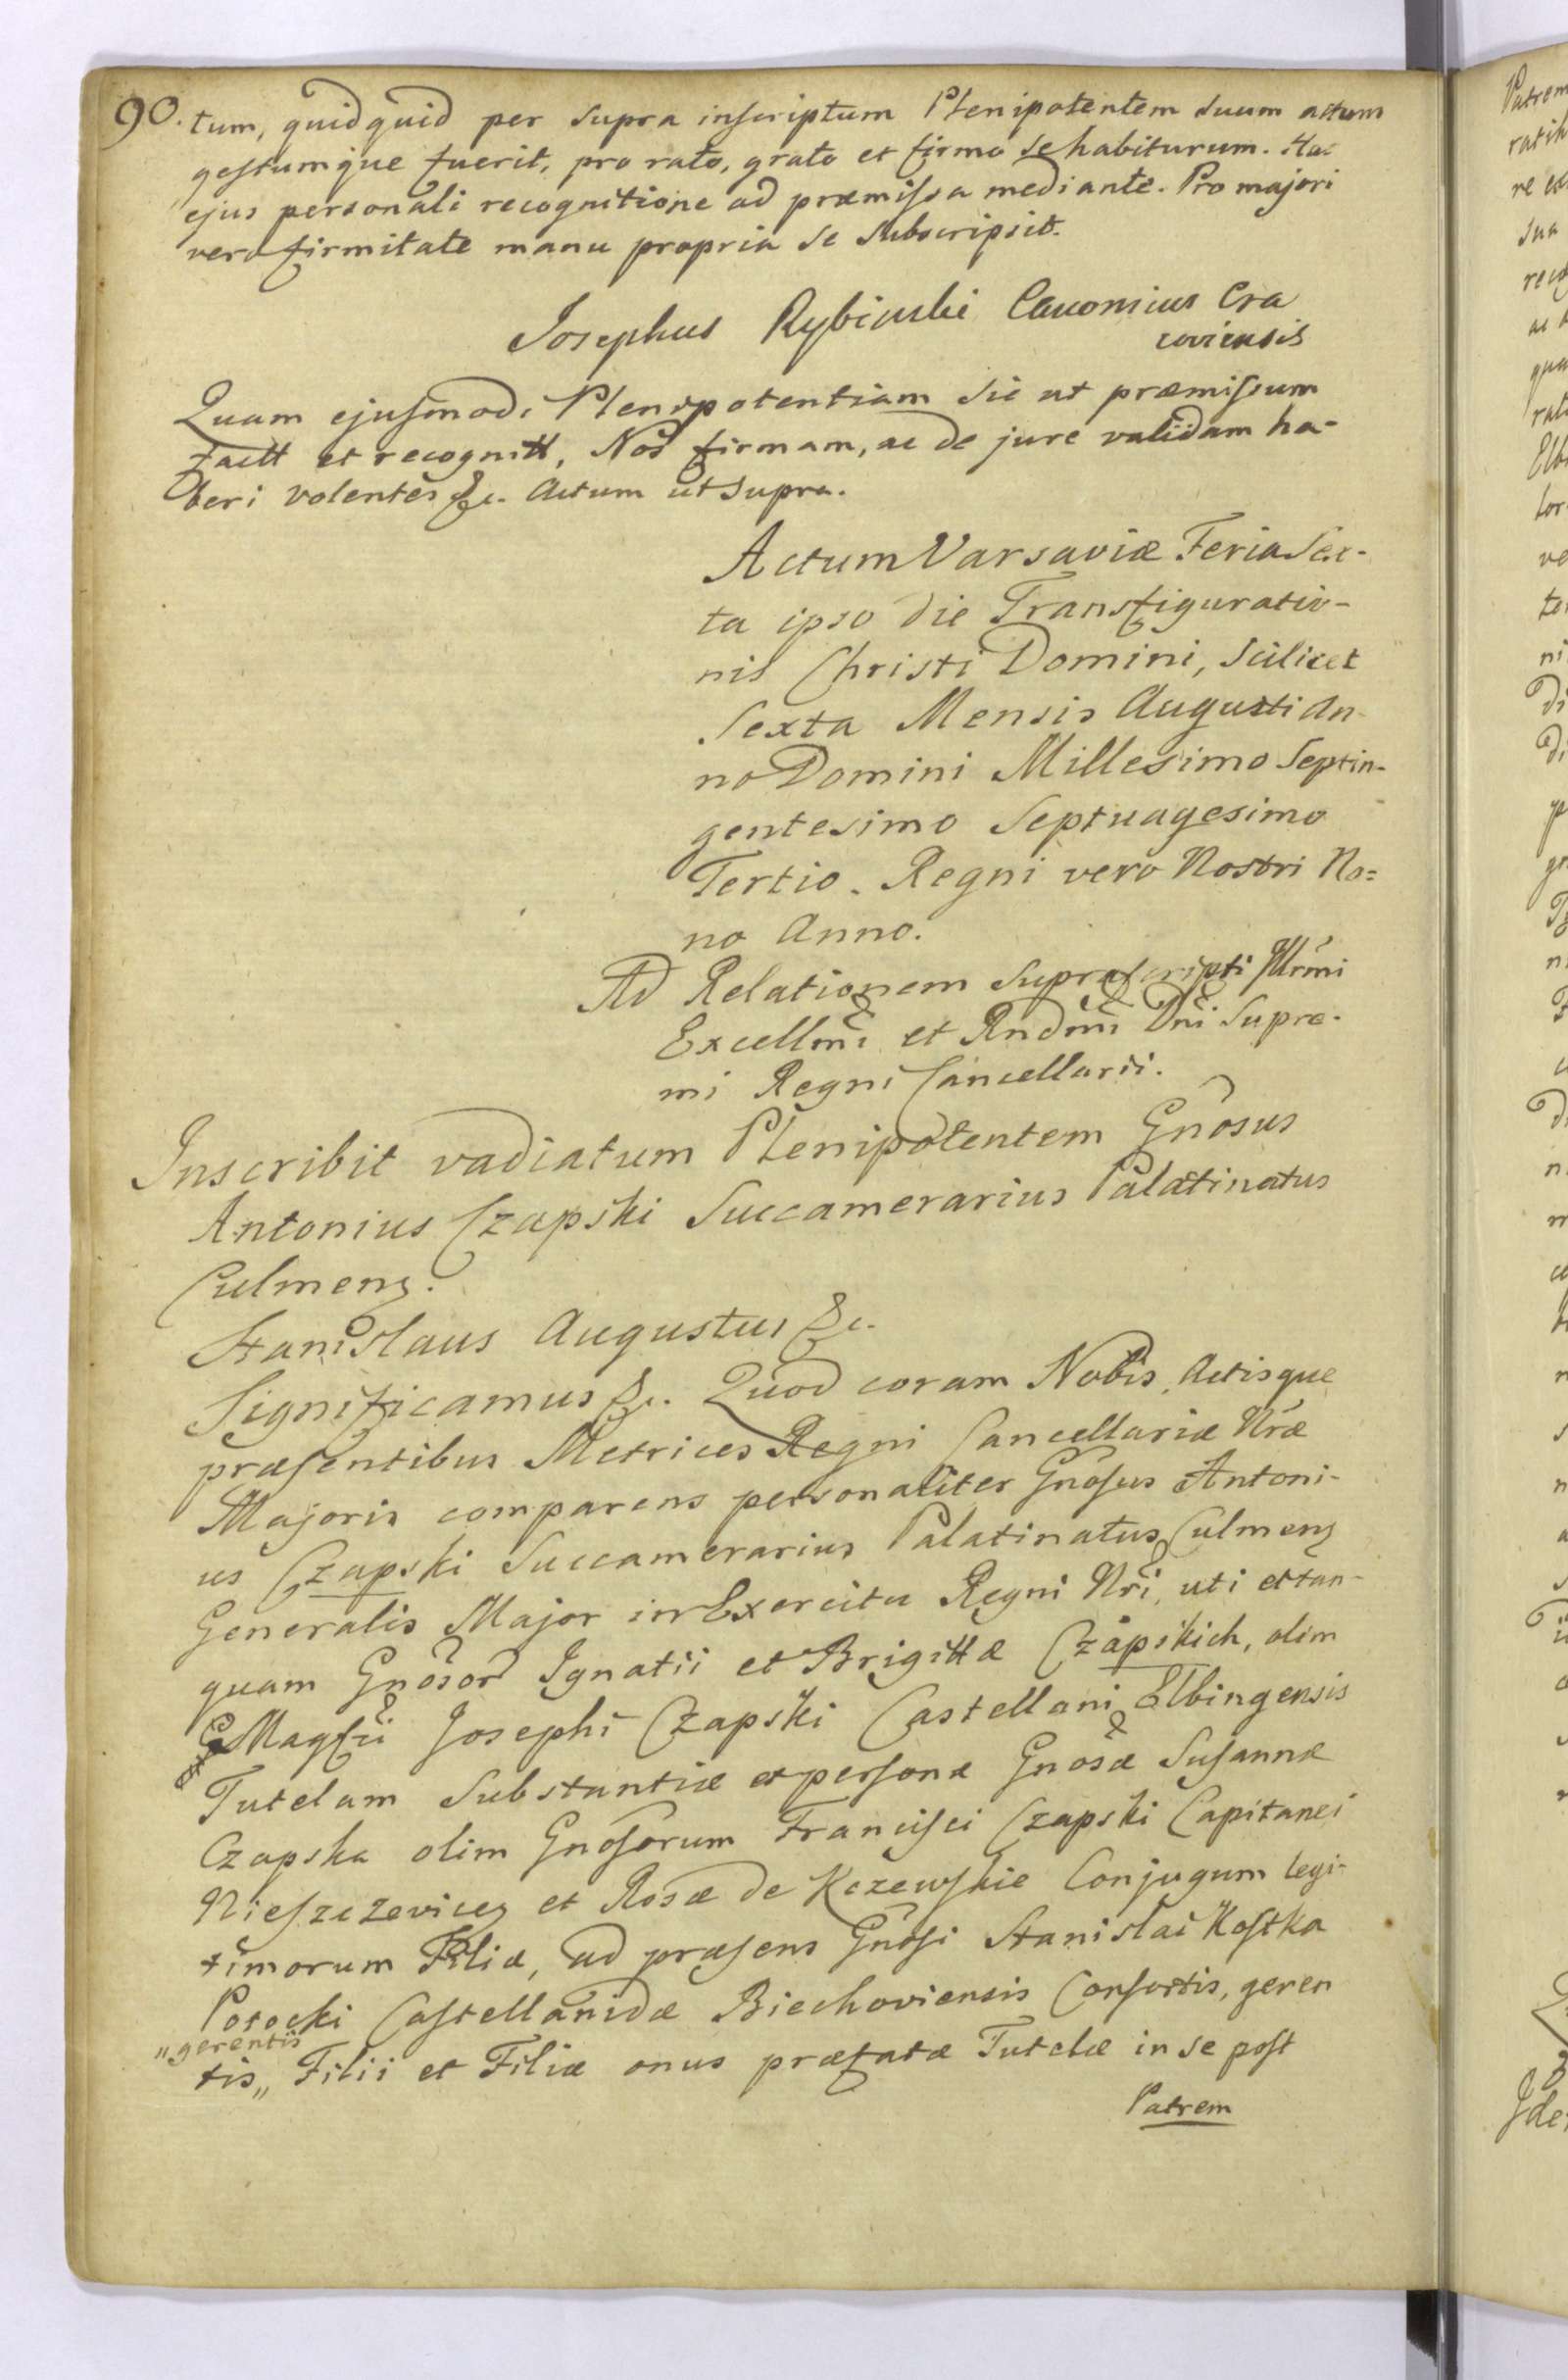 90. tum, quidquid per supra inscriptum Plenipotentem suum actum
gestumque fuerit, pro rato, grato et firmo se habiturum. Hac
ejus personali recognitione ad præmissa mediante. Pro majori
vero firmitate manu propria se subscripsit.
Josephus Rybinski Canonicus Cra
coviensis
Quam ejusmodi Plenipotentiam sic ut præmissum
factt et recognitt, Nos firmam, ac de jure validam ha-
beri volentes &c. Actum ut supra.
Actum Varsaviæ Feria Sex-
ta ipso die Transfiguratio-
nis Christi Domini, scilicet
Sexta Mensis Augusti An-
no Domini Millesimo Septin-
gentesimo Septuagesimo
Tertio. Regni vero Nostri No=
no Anno.
Ad Relationem suprascripti Illrmi
Excellmi et Rndmi Dni Supre-
mi Regni Cancellarii.
Inscribit vadiatum Plenipotentem Gnosus
Antonius Czapski Succamerarius Palatinatus
Culmens.
Stanislaus Augustus &c.
Significamus &c. Quod coram Nobis, Actisque
præsentibus Metrices Regni Cancellariæ Nræ
Majoris comparens personaliter Gnosus Antoni-
us Czapski Succamerarius Palatinatus Culmens
Generalis Major in Exercitu Regni Nri, uti et tan-
quam Gnosor Ignatii et Brigittæ Czapskich, olim
Magfci Josephi Czapski Castellani Elbingensis
Tutelam substantiæ et personæ Gnosæ Susannæ
Czapska olim Gnosorum Francisci Czapski Capitanei
Nieszczevices et Rosæ de Kczewskie Conjugum legi-
timorum Filiæ, ad præsens Gnosi Stanislai Kostka
Potocki Castellanidæ Biechoviensis Consortis, geren
„gerentis
tis„ Filii et Filiæ onus præfatæ Tutelæ in se post
Patrem